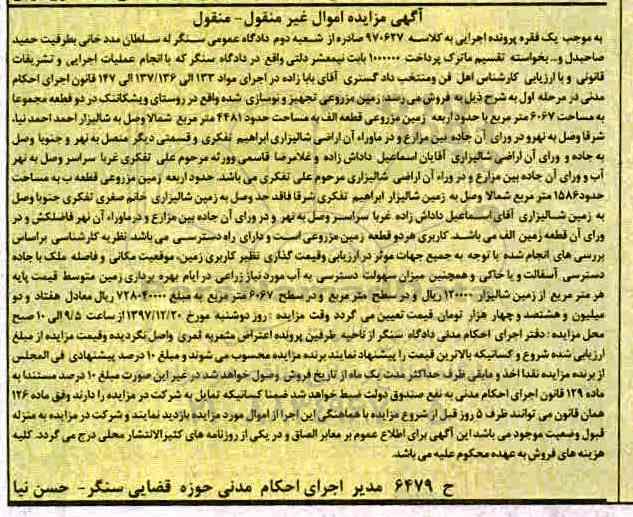 آگهی مزایده اموال غیر منقول - منقول
به موجب یک فقره پرونده اجرایی به کلاسه ۹۷۰۶۲۷ صادره از شعبه دوم دادگاه عمومی سنگر له سلطان مدد خانی بطرفیت حمید
صاحبدل و... بخواسته تقسیم ماترک پرداخت ۱۰۰۰۰۰۰ بابت نیمعشر دلتی واقع در دادگاه سنگر که با انجام عملیات اجرایی و تشریفات
قانونی و با ارزیابی کارشناس اهل فن ومنتخب داد گستری آقای بابا زاده در اجرای مواد ۱۳۳ الی ۱۳۷/۱۳۶ الی ۱۴۷ قانون اجرای احکام
مدنی در مرحله اول به شرح ذیل به فروش می رسد: زمین مزروعی تجهیز و نوسازی شده واقع در روستای ویشکاننک در دو قطعه مجموعا
به مساحت ۶۰۶۷ متر مربع با حدود اربعه زمین مزروعی قطعه الف به مساحت حدود ۴۴۸۱ متر مربع شمالا وصل به شالیزار احمد احمد نیا،
شرقا وصل به نهر و در ورای آن جاده بین مزارع و در ماوراء آن اراضی شالیزاری ابراهیم تفکری و قسمتی دیگر متصل به نهر و جنوبا وصل
به جاده و ورای آن اراضی شالیزاری آقایان اسماعیل داداش زاده و غلامرضا قاسمی وورثه مرحوم علی تفکری غربا سراسر وصل به نهر
آب و ورای آن جاده بین مزارع و در وراء آن اراضی شالیزاری مرحوم علی تفکری می باشد. حدود اربعه زمین مزروعی قطعه ب به مساحت
حدود ۱۵۸۶ متر مربع شمالا وصل به زمین شالیزار ابراهیم تفکری شرقا فاقد حد وصل به زمین شالیزاری خانم صغری تفکری جنوبا وصل
به زمین شالیزاری آقای اسماعیل داداش زاده غربا سراسر وصل به نهر و در ورای آن جاده بین مزارع و در ماوراء آن نهر فاضلکش و در
ورای آن قطعه زمین الف می باشد. کاربری هر دو قطعه زمین مزروعی است و دارای راه دسترسی می باشد. نظر به کارشناسی براساس
بررسی های انجام شده با توجه به جمیع جهات موثر در ارزیابی وقیمت گذاری نظیر کاربری زمین، موقعیت مکانی و فاصله ملک با جاده
دسترسی آسفالت و یا خاکی و همچنین میزان سهولت دسترسی به آب مورد نیاز زراعی در ایام بهره برداری زمین متوسط قیمت پایه
هر متر مربع از زمین شالیزار ۱۲۰۰۰۰ ریال و در سطح متر مربع و در سطح ۶۰۶۷ متر مربع به مبلغ ۷۲۸۰۴۰۰۰۰ ریال معادل هفتاد و دو
میلیون و هشتصد و چهار هزار تومان قیمت تعیین می گردد وقت مزایده : روز دوشنبه مورخ ۱۳۹۷/۱۲/۲۰ از ساعت ۹/۵ الی ۱۰ صبح
محل مزایده : دفتر اجرای احکام مدنی دادگاه سنگر از ناحیه طرفین پرونده اعتراض مثمربه ثمری واصل نگردیده وقیمت مزایده از مبلغ
ارزیابی شده شروع و کسانیکه بالاترین قیمت را پیشنهاد نمایند برنده مزایده محسوب می شوند و مبلغ ۱۰ درصد پیشنهادی فی المجلس
از برنده مزایده نقدا اخذ و مابقی ظرف حداکثر مدت یک ماه از تاریخ فروش وصول خواهد شد در غیر این صورت مبلغ ۱۰ درصد مستندا به
ماده ۱۲۹ قانون اجرای احکام مدنی به نفع صندوق دولت ضبط خواهد شد ضمنا کسانیکه تمایل به شرکت در مزایده را دارند وفق ماده ۱۲۶
همان قانون می توانند ظرف ۵ روز قبل از شروع مزایده با هماهنگی این اجرا از اموال مورد مزایده بازدید نمایند و شرکت در مزایده به منزله
قبول وضعیت موجود می باشد این آگهی برای اطلاع عموم بر معابر الصاق و در یکی از روزنامه های کثیرالانتشار محلی درج می گردد. کلیه
هزینه های فروش به عهده محکوم علیه می باشد.
ح ۶۴۷۹ مدیر اجرای احکام مدنی حوزه قضایی سنگر - حسن نیا